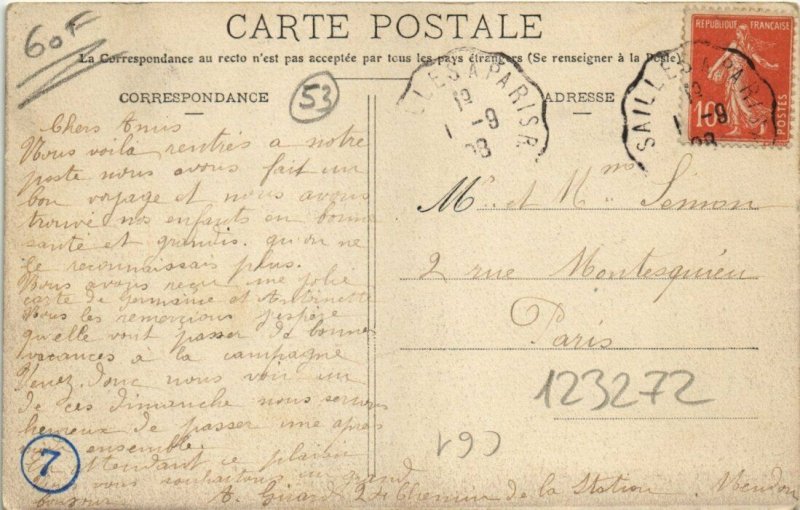 CARTE POSTALE
60F
La Correspondance au recto n'est pas acceptée par tous les pays étrangers (Se renseigner à la Poste)
CORRESPONDANCE
53
ADRESSE
REPUBLIQUE FRANÇAISE
10
POSTES
LLES A PARIS R
19
1 -9
08
SAILLES A PARIS R
19
1 -9
08
Chers Amis
Nous voilà rentrés a notre
poste nous avons fait un
bon voyage et nous avons
trouvé nos enfants en bonne
santé et grandis. qu'on ne
le reconnaissais plus.
Nous avons reçu une jolie
carte de Germaine et Antoinette
Nous les remerçions j'espère
qu'elle vont passer de bonnes
vacances à la campagne
Venez donc nous voir un
de ces dimanche nous serions
heureux de passer une après
midi ensemble.
En attendant ce plaisir
vous souhaitons un grand
bonjour
A. Girard 2 Chemin de la Station. Meudon
Mr. et Mme Simon
2 rue Montesquieu
Paris
123272
C61
7